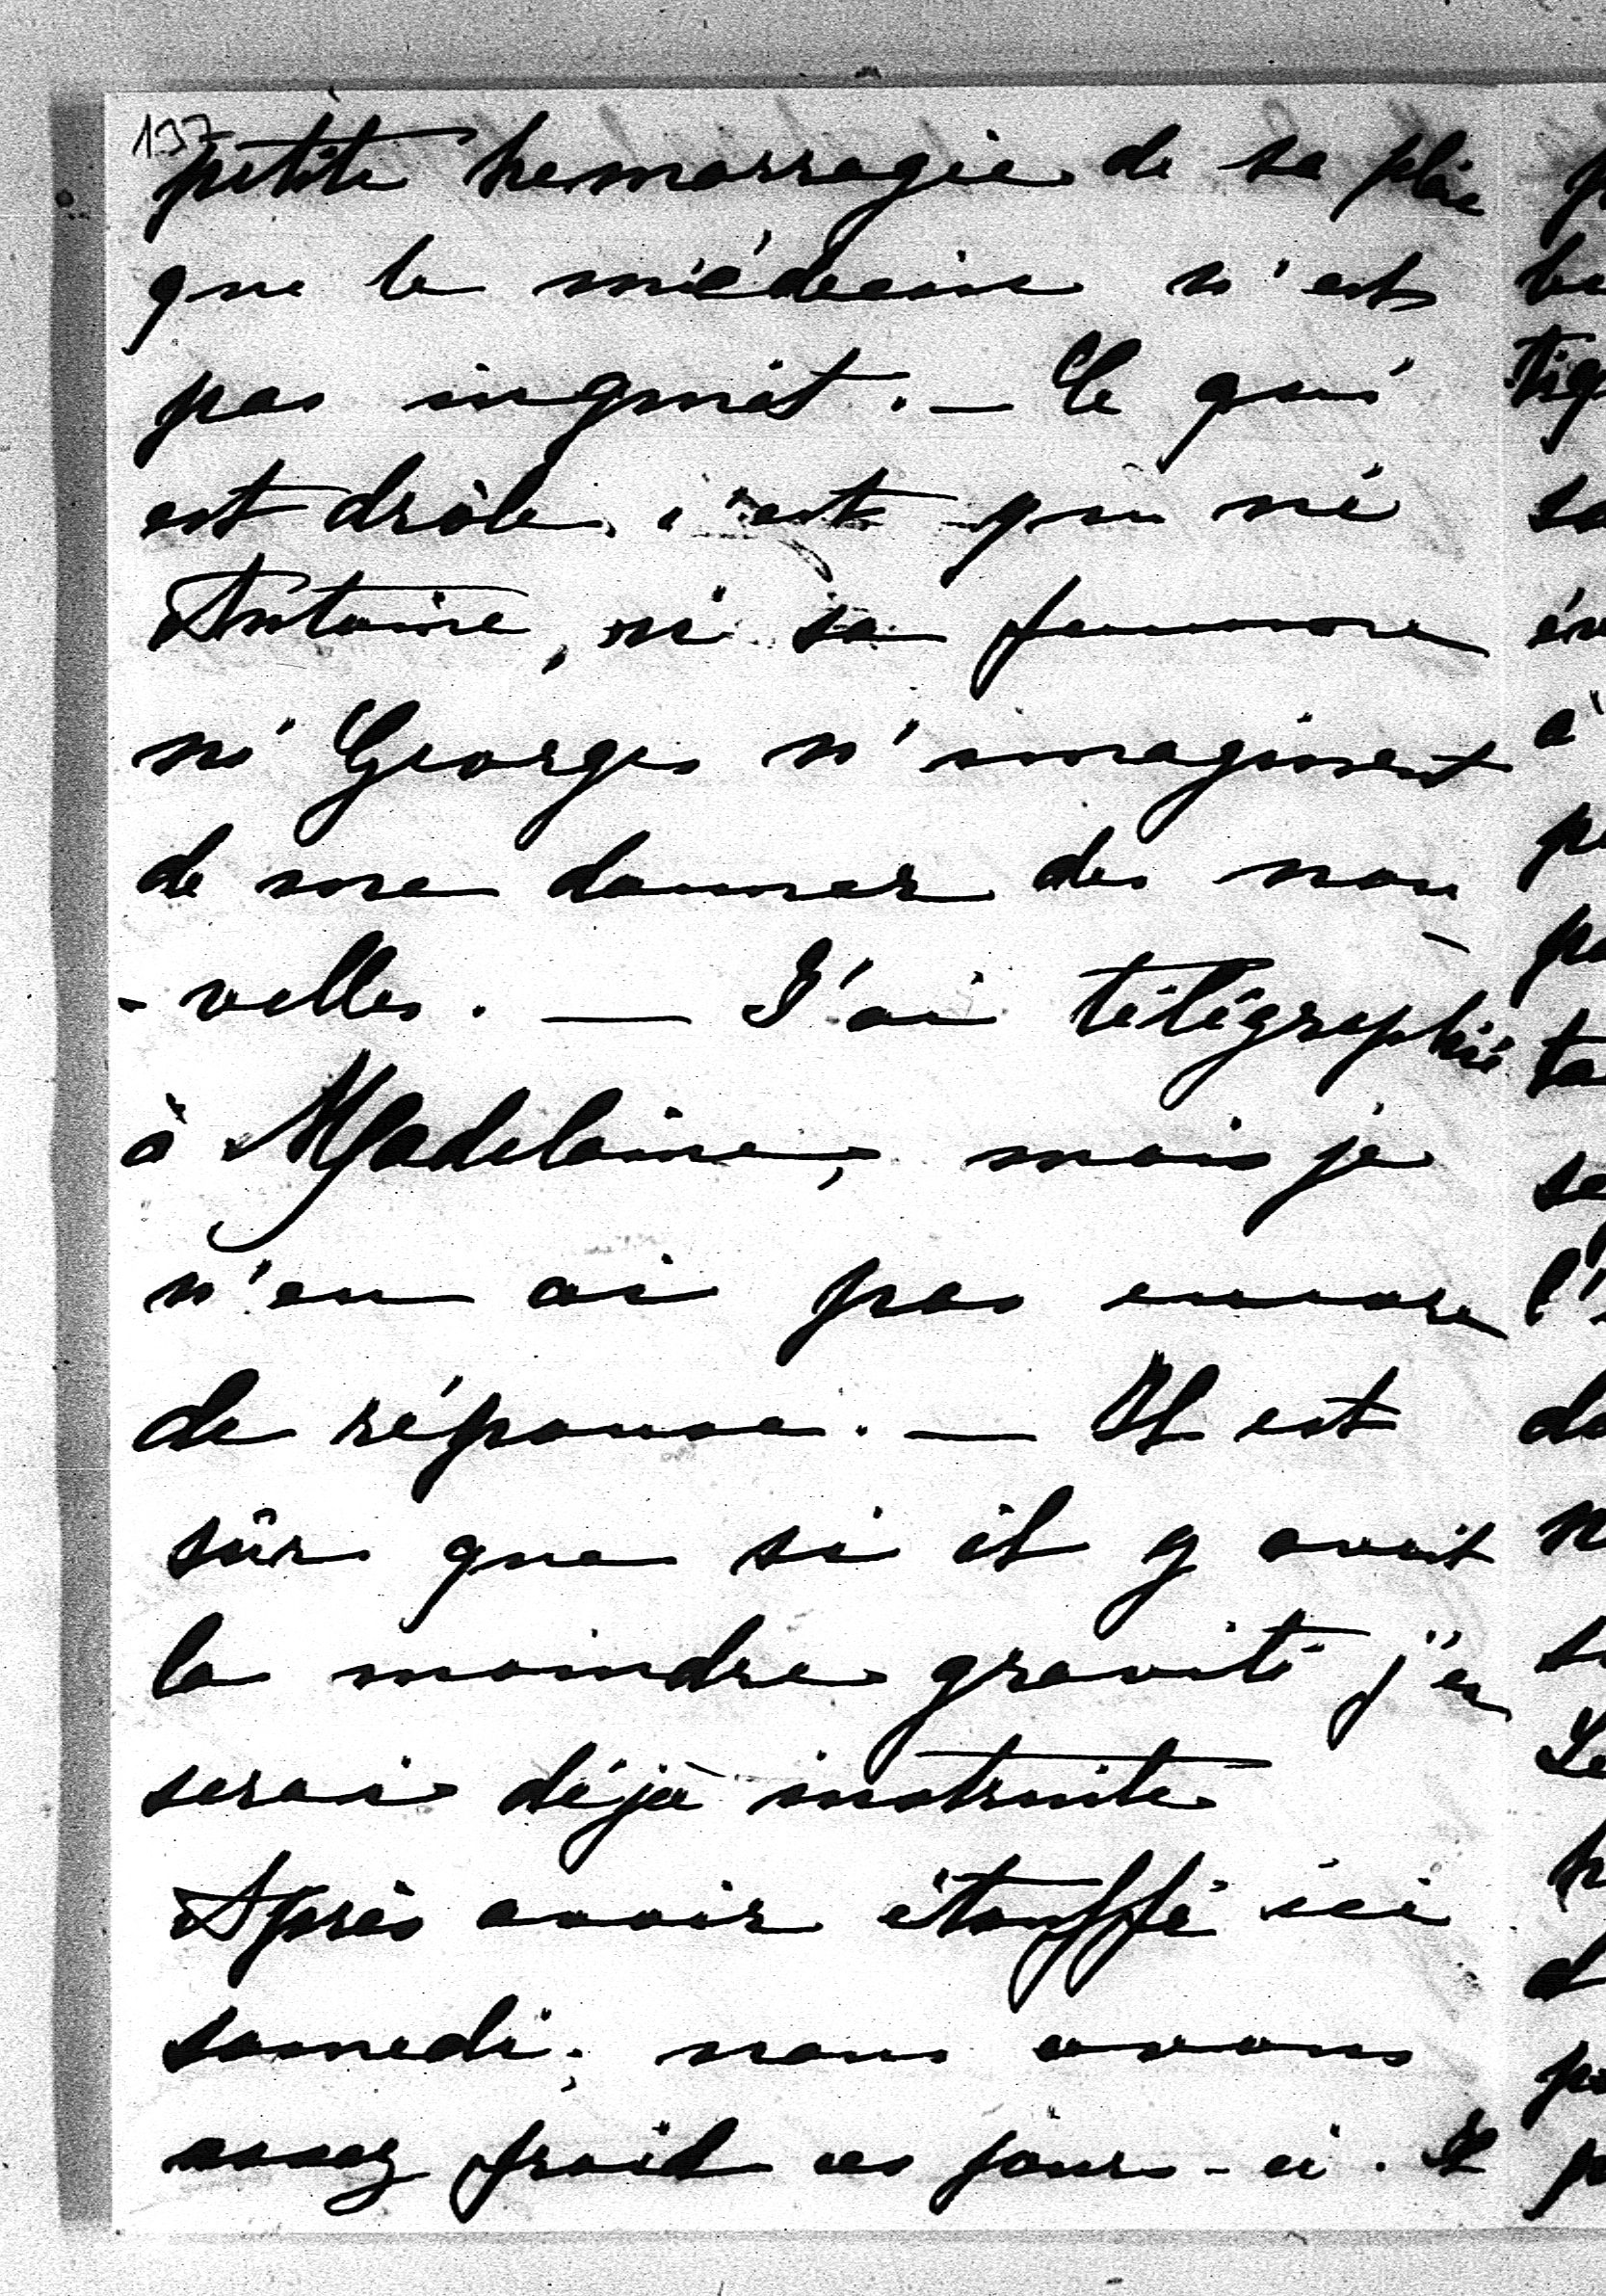 137
petite hemorragie de sa plaie
que le médecin n'est
pas inquiet. — Ce qui
est drôle, c'est que ni
Antoine, ni sa femme
ni Georges n'imaginent
de me donner des nou
- velles. — J'ai télégraphié
à Madelaine, mais je
n'en ai pas encore
de réponse. — Il est
sûr que si il y avait
la moindre gravité j'en
serais déjà instruite
Après avoir étouffé ici
samedi; nous avons
assez froid ces jours-ci. Il